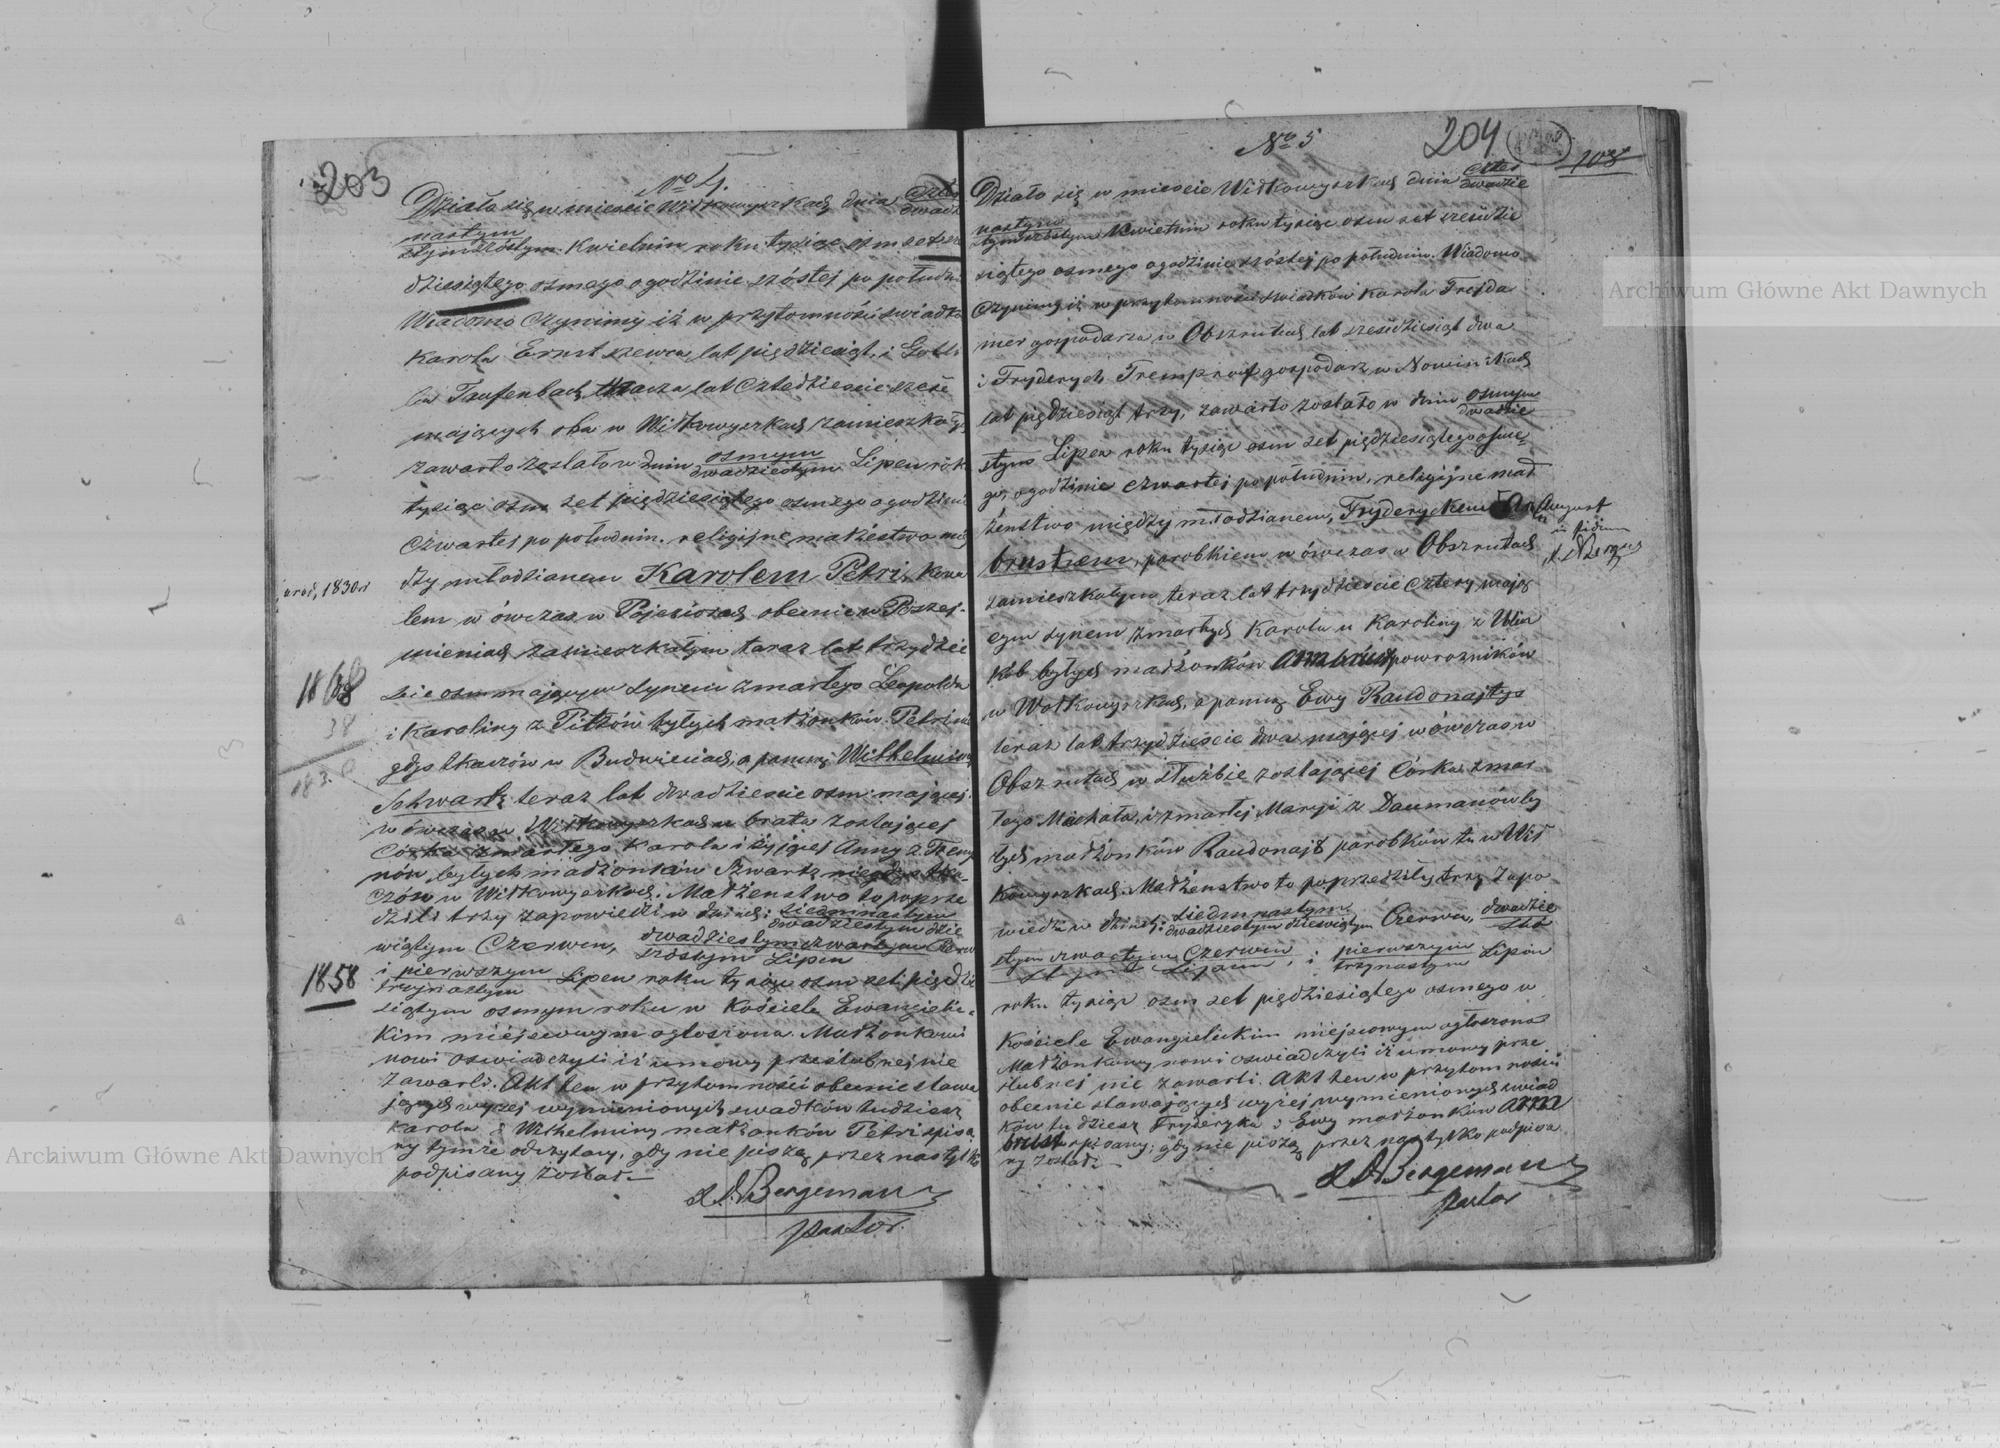 203
No 4.
Działo się w mieście Wiłkowyszkach dnia czter
dwadz
nastym
stym szóstym Kwietnia roku tysiąc osm set sze
dziesiątego osmego o godzinie szóstej po połudn
Wiadomo Czynimy iż w przytomności świadk
Karola Ernst szewca lat pięździesiąt, i Gotl
lat czterdzieście sześć
mających oba w Wiłkowyszkach zamieszkał
zawarto zostało w dniu osmym
dwadziestym Lipca rok
tysiąc osm set pięździesiątego osmego o godzinie
czwartej po południu. religijne małżeństwo mię
dzy młodzianem Karolem Petri, kowa
urod. 1830 r
lem w ówczas w obecnie w Poszej-
mieniach zamieszkałym teraz lat trzydzieś
1868
38
1830
cie osm mającym synem zmarłego Leopolda
i Karoliny z byłych małżonków Petri nie
gdyś tkaczów w Budwieciach, a panną Wilhelminą
Schwartz teraz lat dwadzieście osm mającej
w ówczas w Wiłkowyszkach u brata zostającej
Córka zmarłego Karola i żyjącej Anny z
nów byłych małżonków Szwartz niegdyś tka-
czów w Wiłkowyszkach. Małżeństwo to poprze
dzili trzy zapowiedzi w dniach: siedmnastym
dwadziestym dzie
wiątym Czerwca, dwadziestym czwartym Czerw
szóstym Lipca
1858
i pierwszym
trzynastym Lipca roku tysiąc osm set pięździe
siątym osmym roku w Kościele Ewangielic-
kim miejscowym ogłoszone. Małżonkowie
nowi oświadczyli iż umowy przedślubnej nie
zawarli. Akt ten w przytomności obecnie stawa
jących wyżej wymienionych świadków tudzież
Karola i Wilhelminy małżonków Petri spisa
ny tymże odczytany, gdy nie piszą przez nas tylko
podpisany został.—
Bergemann
Pastor.
No 5
204
108
Działo się w mieście Wiłkowyszkach dnia czter
dwadzie
nastym
stym szóstym Kwietnia roku tysiąc osm set sześdzie
siątego osmego o godzinie szóstej po południu. Wiadomo
Czynimy iż w przytomności świadków Karola Frejda
mer gospodarza w Obszrutach lat sześdziesiąt dwa
i Fryderych gospodarz w Nowinnikach
lat pięździesiąt trzy, zawarto zostało w dniu osmym
dwadzie
stym Lipca roku tysiąc osm set pięździesiątego osme
go, o godzinie czwartej po południu, religijne mał
żeństwo między młodzianem, Fryderyckem August
in fidem
brustrem, parobkiem w ówczas w Obszrutach
zamieszkałym teraz lat trzydzieście cztery mają
cym synem zmarłych Karola u Karoliny z
kób byłych małżonków Armbrust powrozników
w Wołkowyszkach, a panną Ewy Raudonajtys
teraz lat trzydzieście dwa mającej w ówczas w
Obszrutach w służbie zostającej Córka zmar
łego Michała, i zmarłej Maryi z Daumanów by
łych małżonków Raudonajs parobków tu w Wił
kowyszkach. Małżeństwo to poprzedziły trzy zapo
wiedzi w dniach: siedmnastym
dwadziestym dziewiątym Czerwca, dwadzie
szó
stym czwartym Czerwca
stym Lipca, i pierwszym
trzynastym Lipca
roku tysiąc osm set pięździesiątego osmego w
Kościele Ewangielickim miejscowym ogłoszone
Małżonkowy nowi oświadczyli iż umowy prze
ślubnej nie zawarli. Akt ten w przytomności
obecnie stawających wyżej wymienionych świad
ków tudzież Fryderyka i Ewy małżonków Arm
brust spisany, gdy nie piszą przez nas tylko podpisa
ny został.—
Bergemann
Pastor
Archiwum Główne Akt Dawnych
Archiwum Główne Akt Dawnych